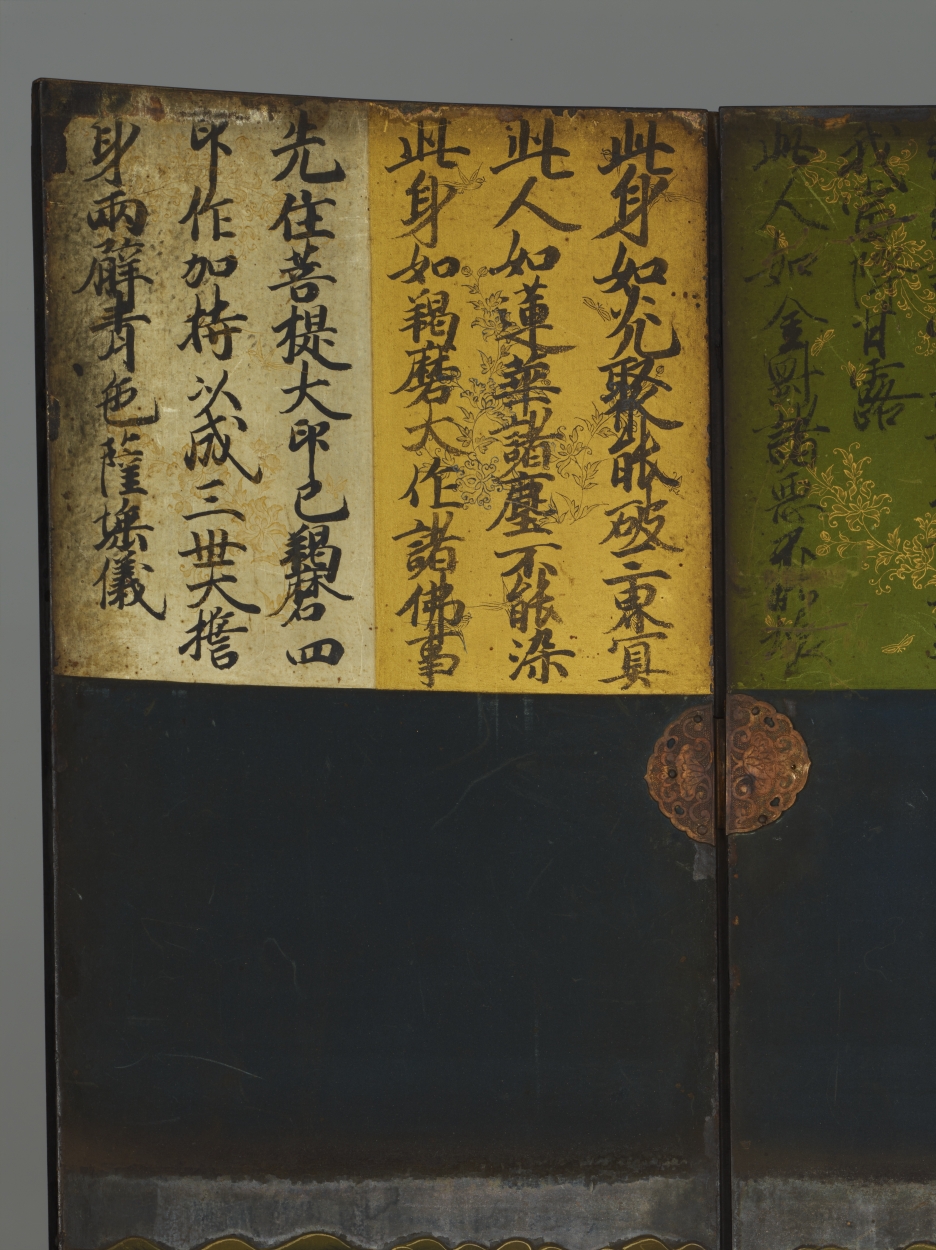 我降甘露
此人如金剛諸惡不能壞
此身如光聚能破冥
此人如蓮華諸塵不能染
此身如羯磨大作諸佛事
先住菩提大印已羯磨四
印作加持以成三世大擔
身兩青色薩埵儀